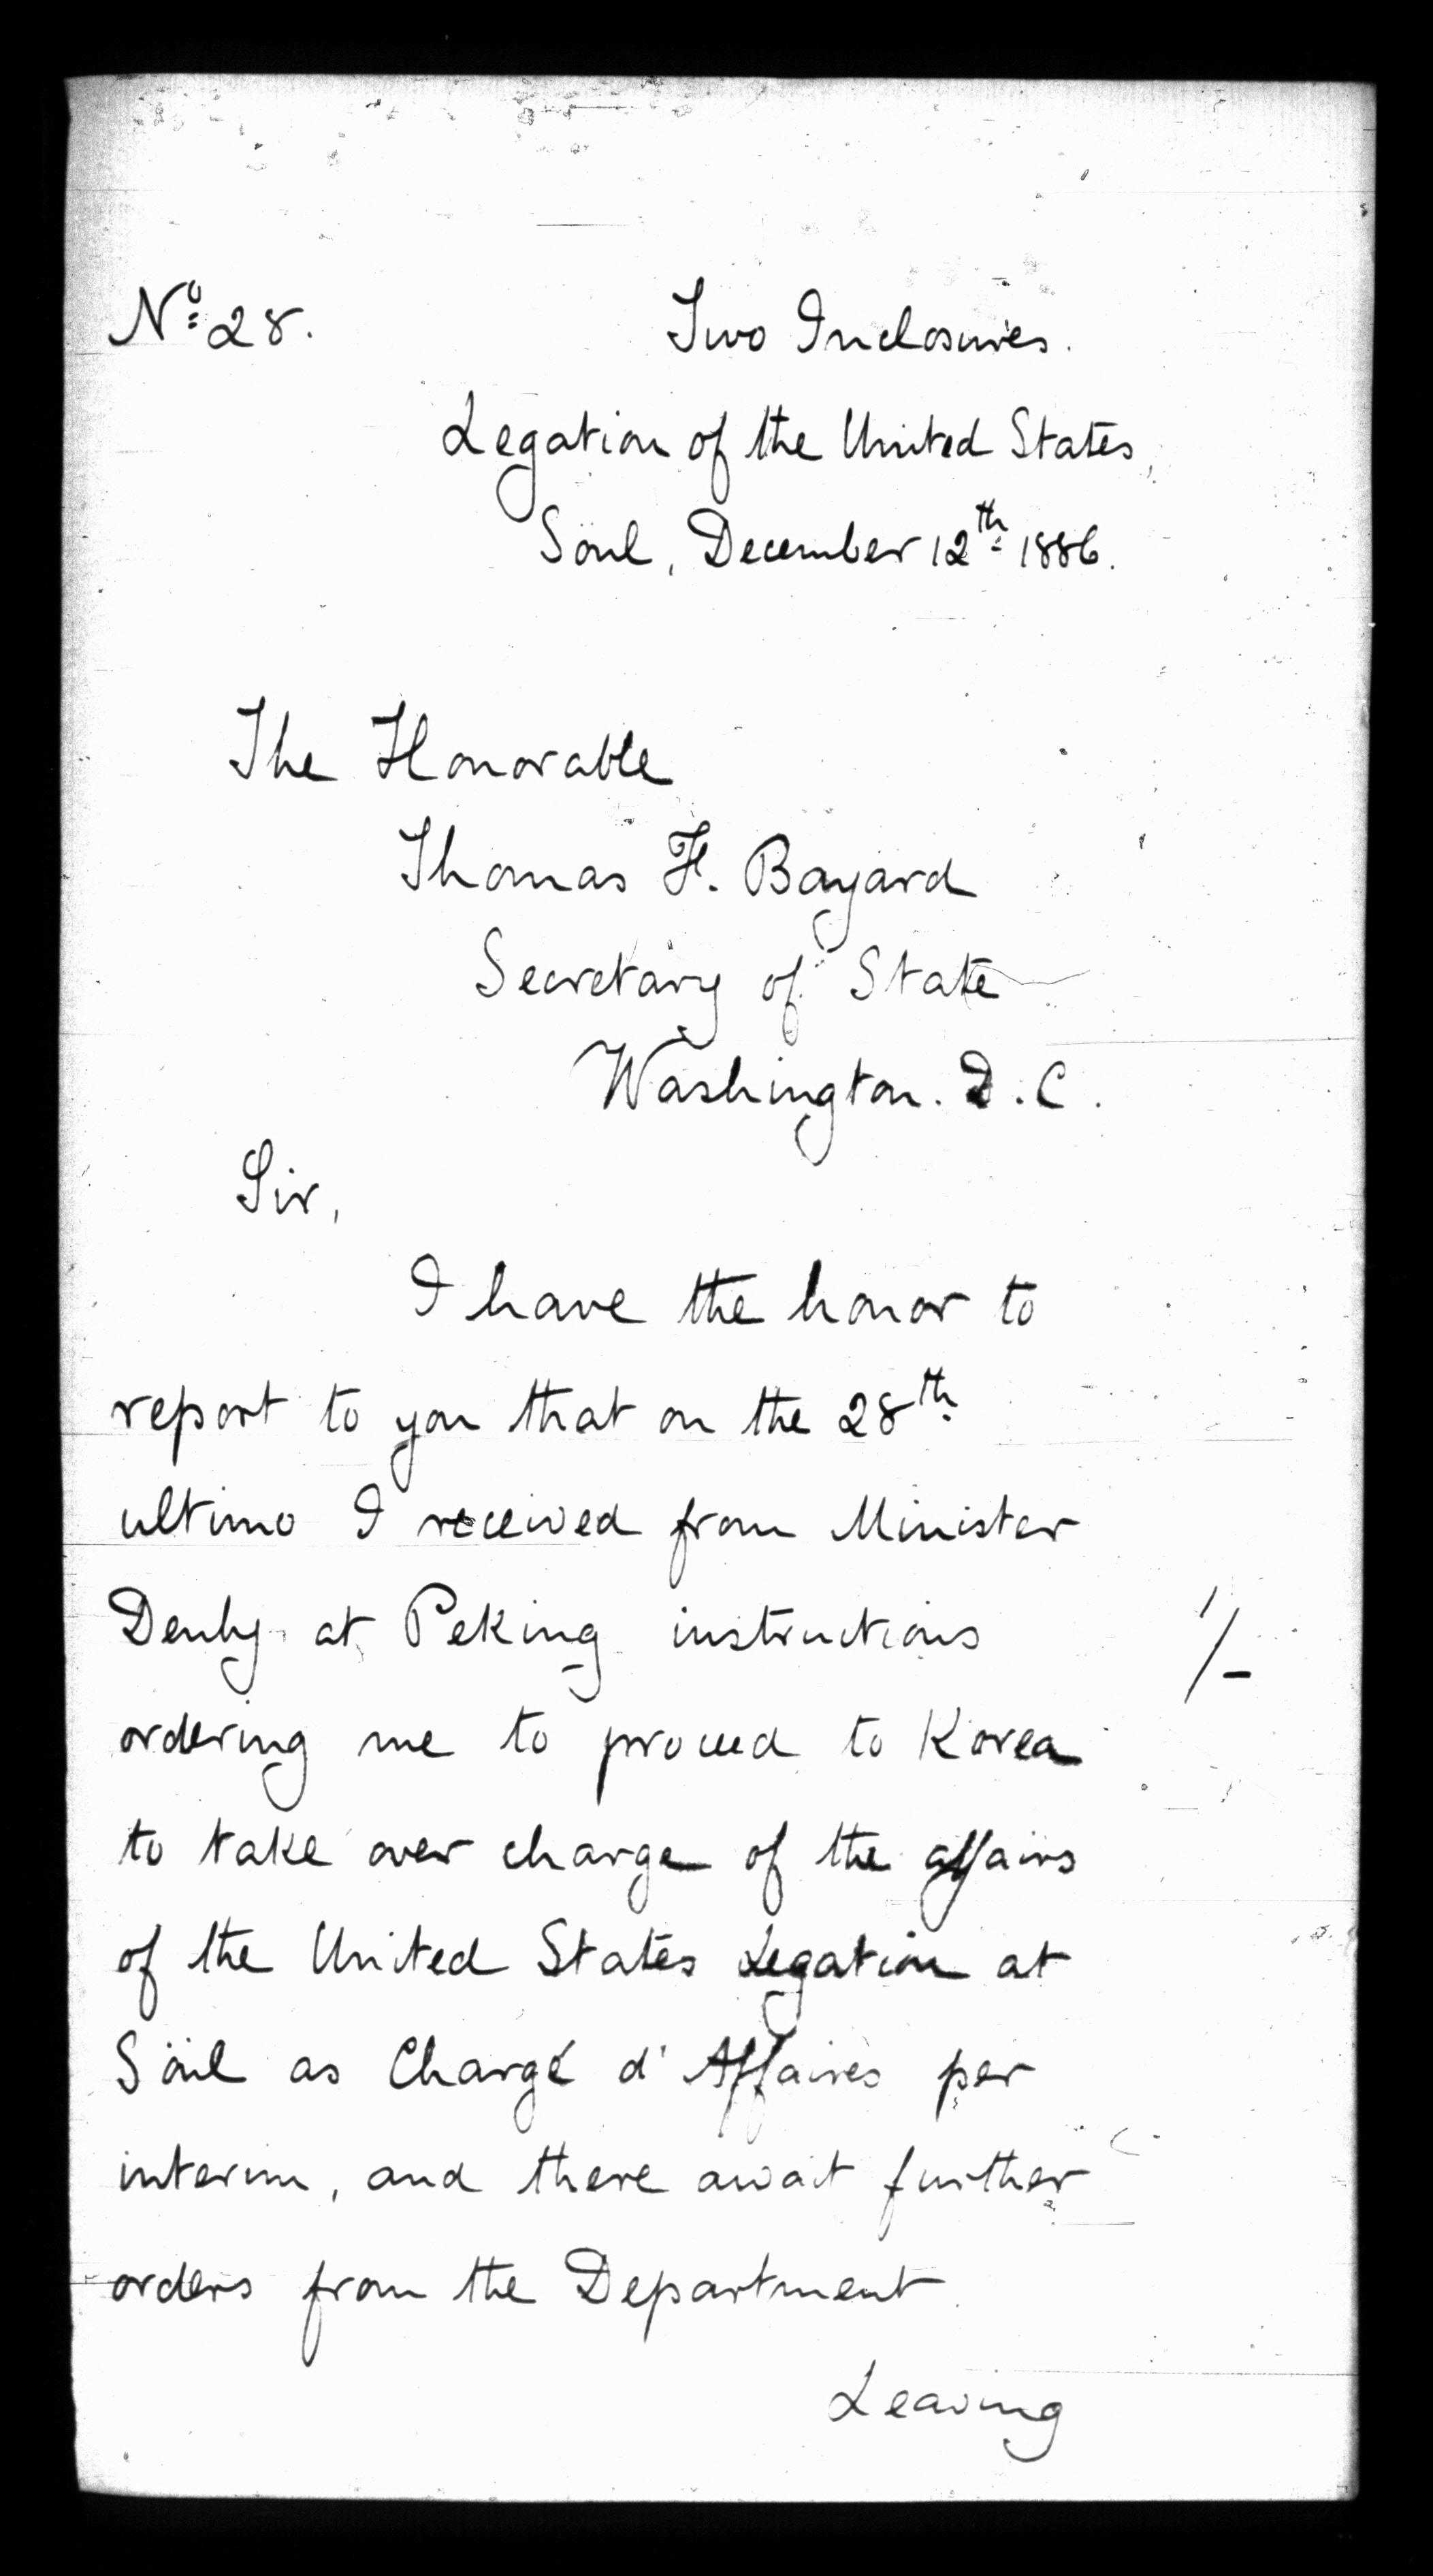 Nº 28.
Two Inclosures.
Legation of the United States,
Söul, December 12th 1886.
The Honorable
Thomas F. Bayard
Secretary of State
Washington. D.C.
Sir,
I have the honor to
report to you that on the 28th
ultimo I received from Minister
Denby at Peking instructions
1/-
ordering me to proceed to Korea
to take over charge of the affairs
of the United States Legation at
Söul as Chargé d'Affaires per
interim, and there await further
orders from the Department.
Leaving